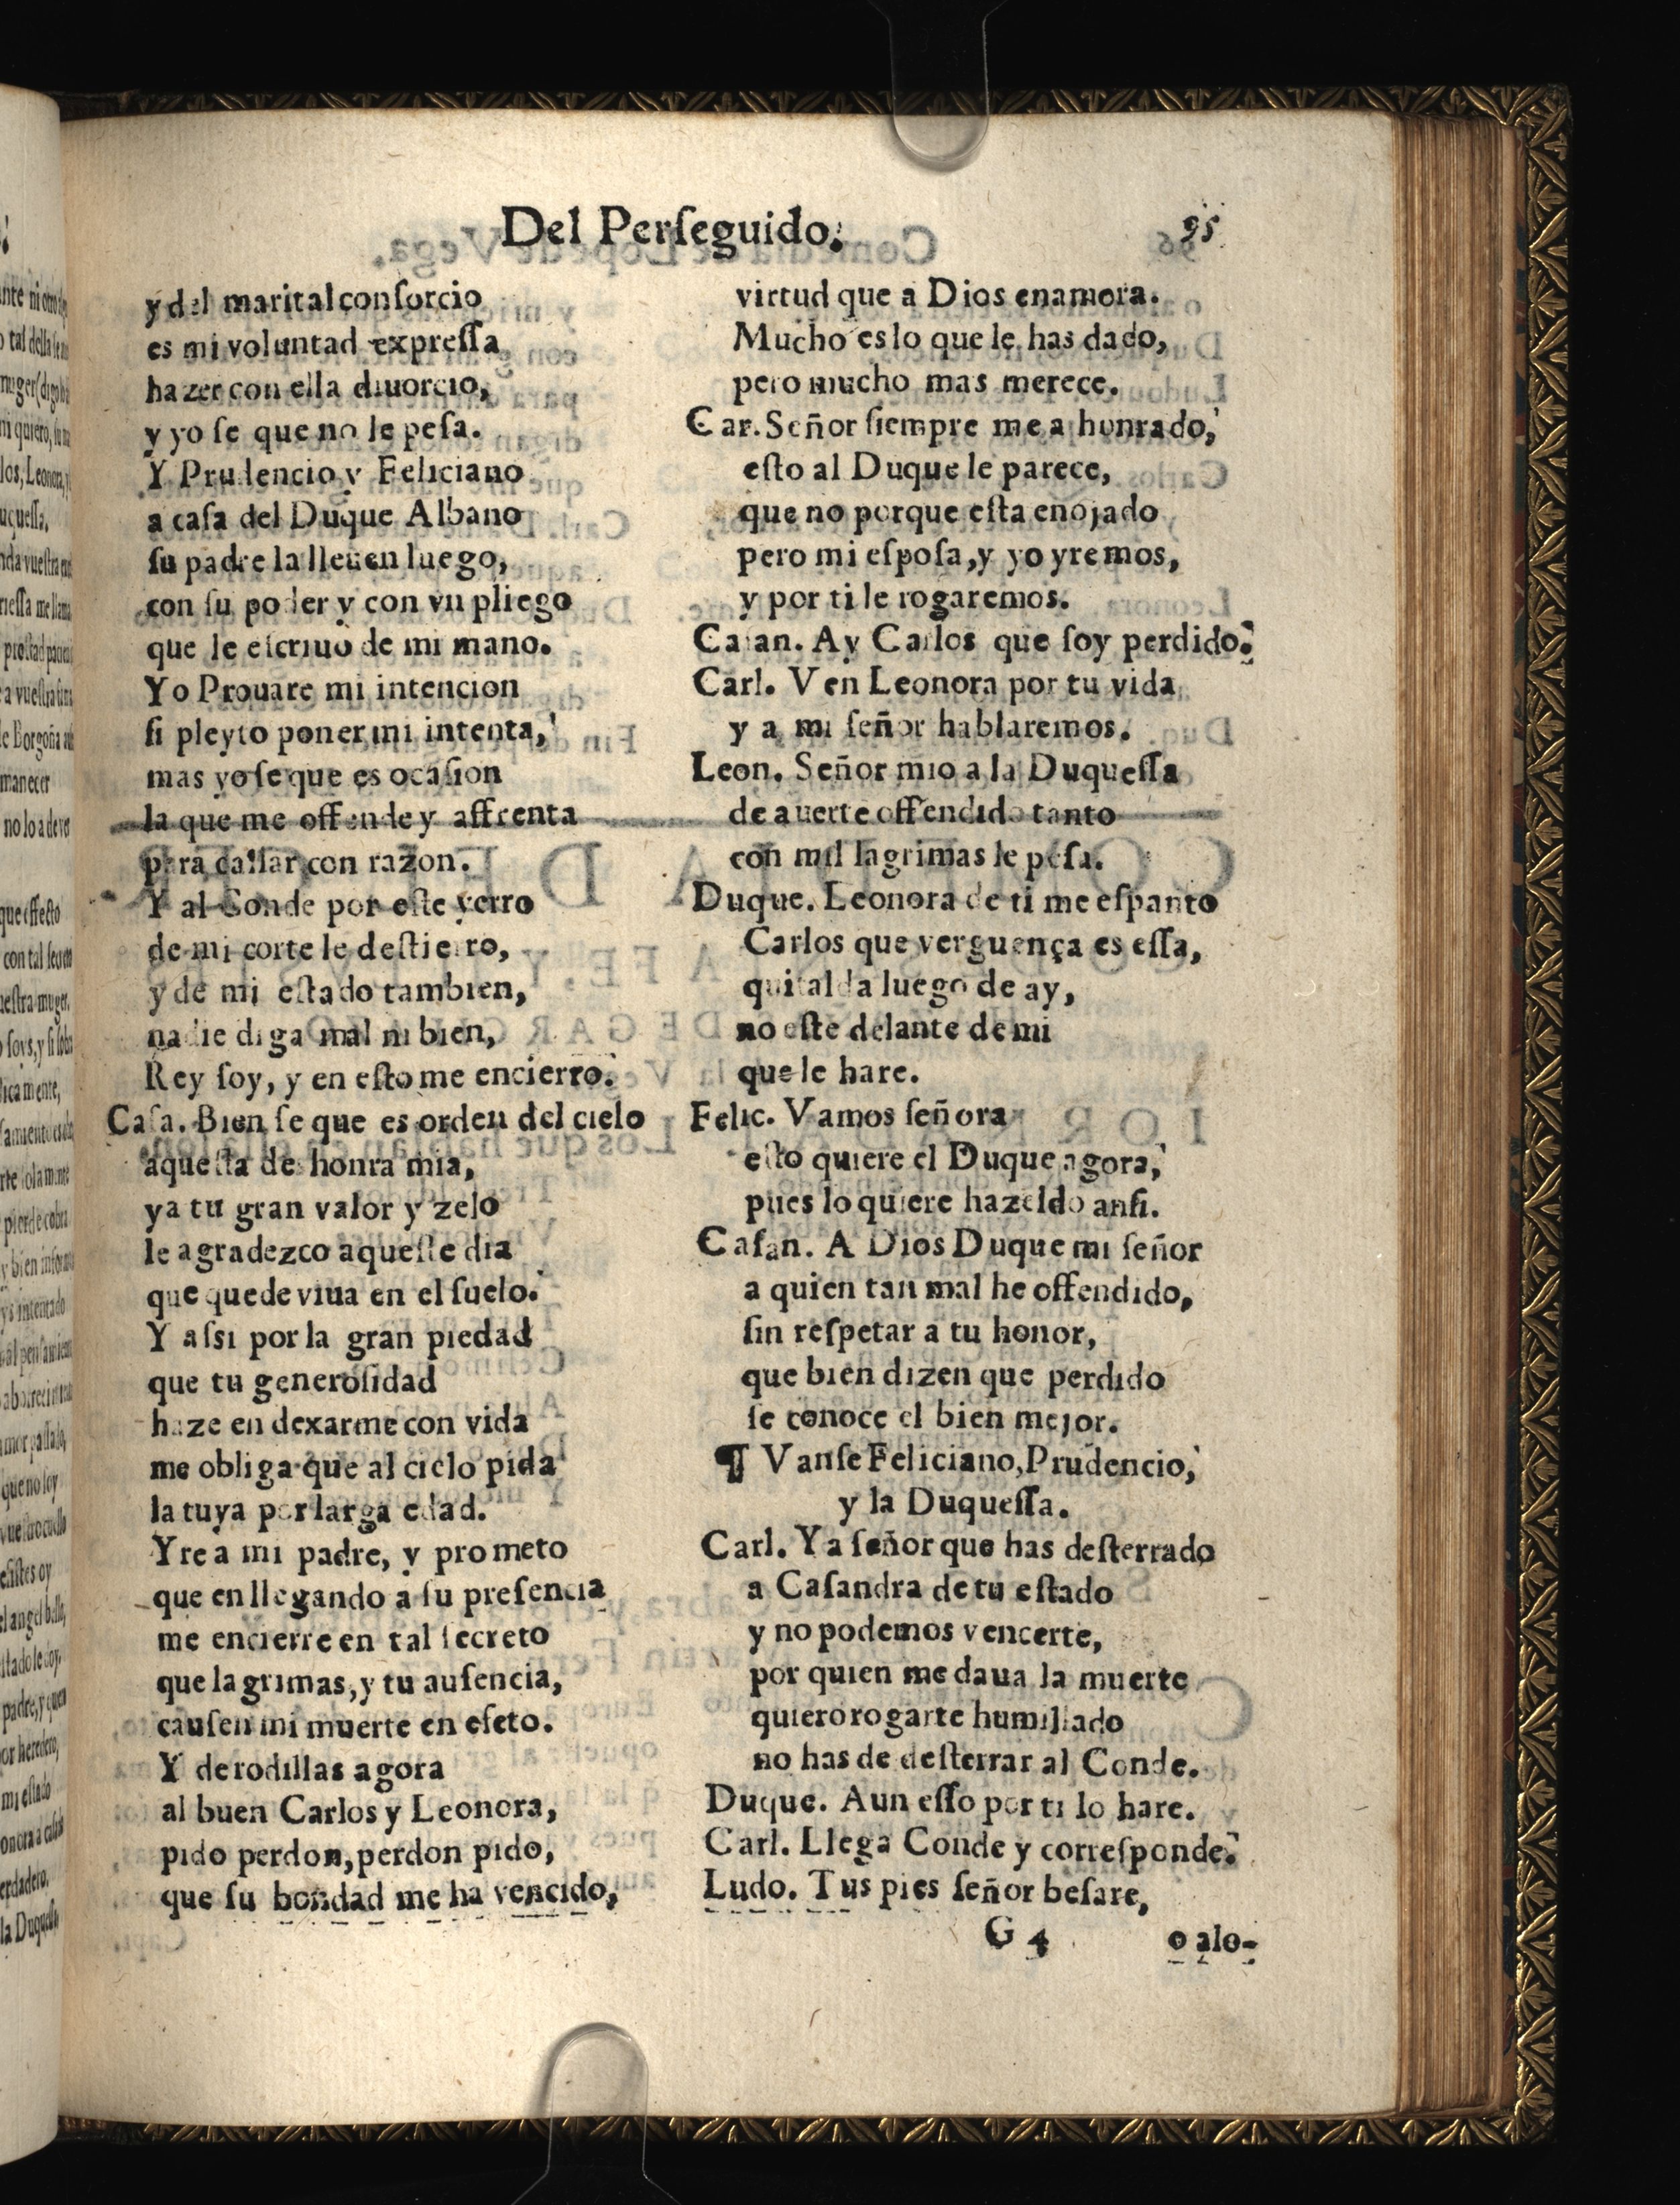 Del Perſeguido.
95
y del marital conſorcio
es mi voluntad expreſſa
hazer con ella diuorcio,
y yo ſe que no le peſa.
Y Prudencio y Feliciano
a caſa del Duque Albano
ſu padre la lleuen luego,
con ſu poder y con vn pliego
que le eſcriuo de mi mano.
Yo Prouare mi intencion
ſi pleyto poner mi intenta,
mas yo ſe que es ocaſion
la que me offende y affrenta
para callar con razon.
Y al Conde por eſte yerro
de mi corte le deſtierro,
y de mi eſtado tambien,
nadie diga mal ni bien,
Rey ſoy, y en eſto me encierro.
Caſa. Bien ſe que es orden del cielo
aqueſta deshonra mia,
ya tu gran valor y zelo
le agradezco aqueſte dia
que quede viua en el ſuelo.
Y aſsi por la gran piedad
que tu generoſidad
haze en dexarme con vida
me obliga que al cielo pida
la tuya por larga edad.
Yre a mi padre, y prometo
que en llegando a ſu preſencia
me encierre en tal ſecreto
que lagrimas, y tu auſencia,
cauſen mi muerte en efeto.
Y de rodillas agora
al buen Carlos y Leonora,
pido perdon, perdon pido,
que ſu bondad me ha vencido,
virtud que a Dios enamora.
Mucho es lo que le has dado,
pero mucho mas merece.
Car. Señor ſiempre me a honrado,
eſto al Duque le parece,
que no porque eſta enojado
pero mi eſpoſa, y yo yremos,
y por ti le rogaremos.
Caſan. Ay Carlos que ſoy perdido.
Carl. Ven Leonora por tu vida
y a mi ſeñor hablaremos.
Leon. Señor mio a la Duqueſſa
de auerte offendido tanto
con mil lagrimas le peſa.
Duque. Leonora de ti me eſpanto
Carlos que verguença es eſſa,
quitalda luego de ay,
no eſte delante de mi
que le hare.
Felic. Vamos ſeñora
eſto quiere el Duque agora,
pues lo quiere hazeldo anſi.
Caſan. A Dios Duque mi ſeñor
a quien tan mal he offendido,
ſin reſpetar a tu honor,
que bien dizen que perdido
ſe conoce el bien mejor.
¶ Vanſe Feliciano, Prudencio,
y la Duqueſſa.
Carl. Ya ſeñor que has deſterrado
a Caſandra de tu eſtado
y no podemos vencerte,
por quien me daua la muerte
quiero rogarte humillado
no has de deſterrar al Conde.
Duque. Aun eſſo por ti lo hare.
Carl. Llega Conde y correſponde.
Ludo. Tus pies ſeñor beſare,
G 4
o alo-